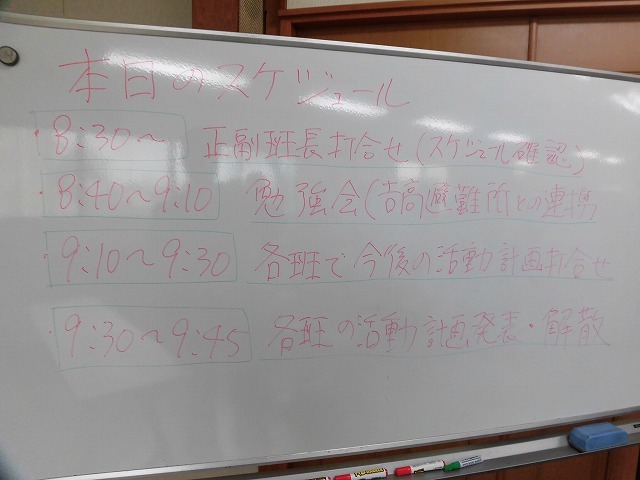 本日のスケジュール
・8:30～ 正副班長打合せ(スケジュール確認)
・8:40～9:10 勉強会(吉高避難所との連携
・9:10～9:30 各班で今後の活動計画打合せ
・9:30～9:45 各班の活動計画発表・解散